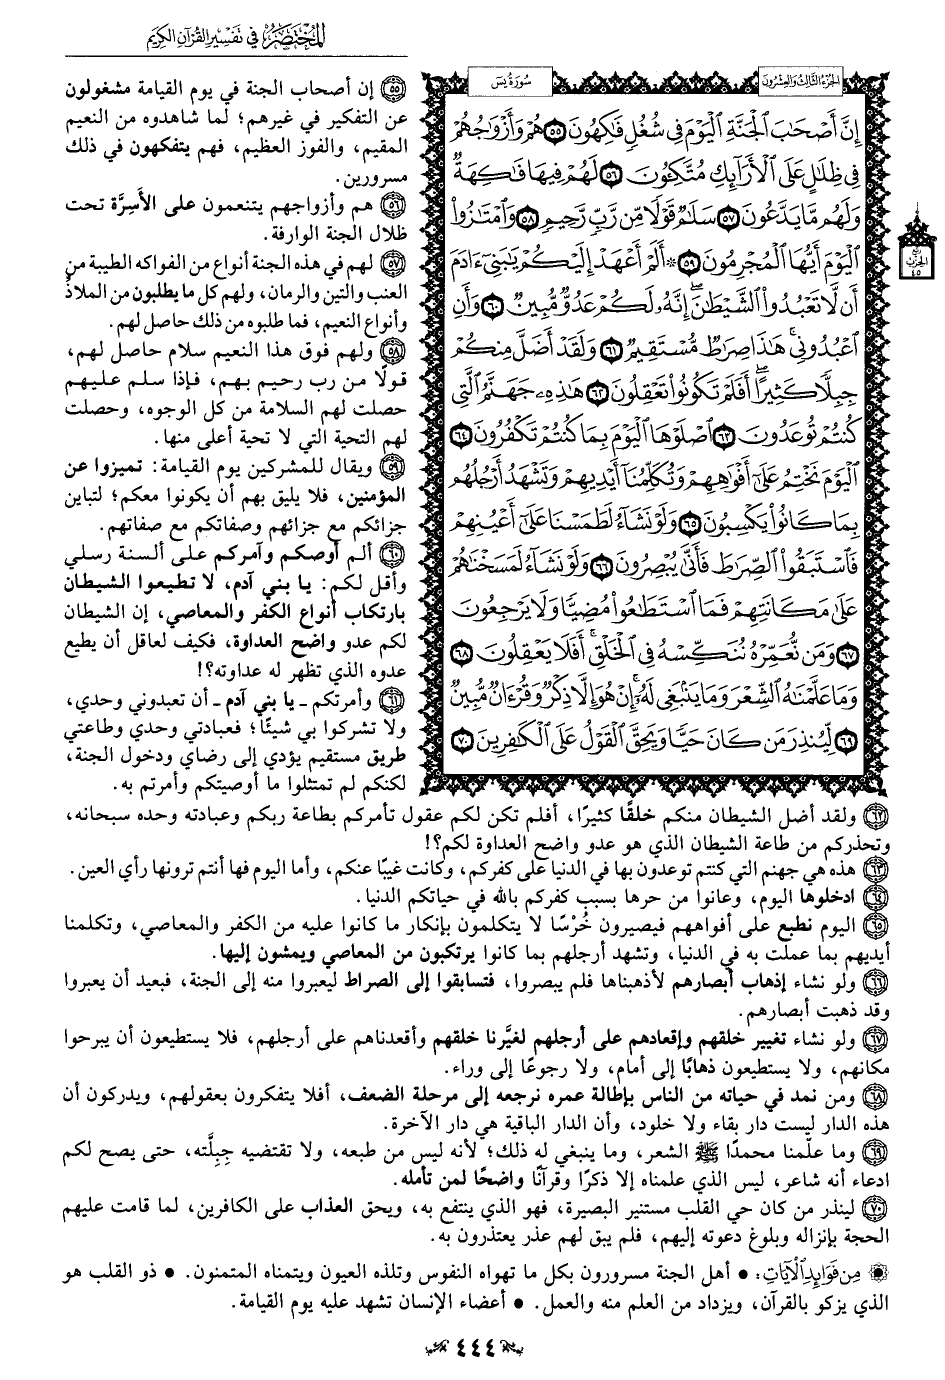 المختصر في تفسير القرآن الكريم
الجزء الثالث والعشرون
سورة يس
إِنَّ أَصْحَٰبَ ٱلْجَنَّةِ ٱلْيَوْمَ فِى شُغُلٍ فَٰكِهُونَ ٥٥ هُمْ وَأَزْوَٰجُهُمْ
فِى ظِلَٰلٍ عَلَى ٱلْأَرَآئِكِ مُتَّكِـُٔونَ ٥٦ لَهُمْ فِيهَا فَٰكِهَةٌ
وَلَهُم مَّا يَدَّعُونَ ٥٧ سَلَٰمٌ قَوْلًا مِّن رَّبٍّ رَّحِيمٍ ٥٨ وَٱمْتَٰزُوا۟
ٱلْيَوْمَ أَيُّهَا ٱلْمُجْرِمُونَ ٥٩ ۞ أَلَمْ أَعْهَدْ إِلَيْكُمْ يَٰبَنِىٓ ءَادَمَ
أَن لَّا تَعْبُدُوا۟ ٱلشَّيْطَٰنَ ۖ إِنَّهُۥ لَكُمْ عَدُوٌّ مُّبِينٌ ٦٠ وَأَنِ
ٱعْبُدُونِى ۚ هَٰذَا صِرَٰطٌ مُّسْتَقِيمٌ ٦١ وَلَقَدْ أَضَلَّ مِنكُمْ
جِبِلًّا كَثِيرًا ۖ أَفَلَمْ تَكُونُوا۟ تَعْقِلُونَ ٦٢ هَٰذِهِۦ جَهَنَّمُ ٱلَّتِى
كُنتُمْ تُوعَدُونَ ٦٣ ٱصْلَوْهَا ٱلْيَوْمَ بِمَا كُنتُمْ تَكْفُرُونَ ٦٤
ٱلْيَوْمَ نَخْتِمُ عَلَىٰٓ أَفْوَٰهِهِمْ وَتُكَلِّمُنَآ أَيْدِيهِمْ وَتَشْهَدُ أَرْجُلُهُم
بِمَا كَانُوا۟ يَكْسِبُونَ ٦٥ وَلَوْ نَشَآءُ لَطَمَسْنَا عَلَىٰٓ أَعْيُنِهِمْ
فَٱسْتَبَقُوا۟ ٱلصِّرَٰطَ فَأَنَّىٰ يُبْصِرُونَ ٦٦ وَلَوْ نَشَآءُ لَمَسَخْنَٰهُمْ
عَلَىٰ مَكَانَتِهِمْ فَمَا ٱسْتَطَٰعُوا۟ مُضِيًّا وَلَا يَرْجِعُونَ
٦٧ وَمَن نُّعَمِّرْهُ نُنَكِّسْهُ فِى ٱلْخَلْقِ ۖ أَفَلَا يَعْقِلُونَ ٦٨
وَمَا عَلَّمْنَٰهُ ٱلشِّعْرَ وَمَا يَنۢبَغِى لَهُۥٓ ۚ إِنْ هُوَ إِلَّا ذِكْرٌ وَقُرْءَانٌ مُّبِينٌ
٦٩ لِّيُنذِرَ مَن كَانَ حَيًّا وَيَحِقَّ ٱلْقَوْلُ عَلَى ٱلْكَٰفِرِينَ ٧٠
ربع
الحزب
٤٥
٥٥ إن أصحاب الجنة في يوم القيامة مشغولون
عن التفكير في غيرهم؛ لما شاهدوه من النعيم
المقيم، والفوز العظيم، فهم يتفكهون في ذلك
مسرورين.
٥٦ هم وأزواجهم يتنعمون على الأَسِرَّة تحت
ظلال الجنة الوارفة.
٥٧ لهم في هذه الجنة أنواع من الفواكه الطيبة من
العنب والتين والرمان، ولهم كل ما يطلبون من الملاذّ
وأنواع النعيم، فما طلبوه من ذلك حاصل لهم.
٥٨ ولهم فوق هذا النعيم سلام حاصل لهم،
قولًا من رب رحيم بهم، فإذا سلم عليهم
حصلت لهم السلامة من كل الوجوه، وحصلت
لهم التحية التي لا تحية أعلى منها.
٥٩ ويقال للمشركين يوم القيامة: تميزوا عن
المؤمنين، فلا يليق بهم أن يكونوا معكم؛ لتباين
جزائكم مع جزائهم وصفاتكم مع صفاتهم.
٦٠ ألم أوصكم وآمركم على ألسنة رسلي
وأقل لكم: يا بني آدم، لا تطيعوا الشيطان
بارتكاب أنواع الكفر والمعاصي، إن الشيطان
لكم عدو واضح العداوة، فكيف لعاقل أن يطيع
عدوه الذي تظهر له عداوته؟!
٦١ وأمرتكم - يا بني آدم - أن تعبدوني وحدي،
ولا تشركوا بي شيئًا؛ فعبادتي وحدي وطاعتي
طريق مستقيم يؤدي إلى رضاي ودخول الجنة،
لكنكم لم تمتثلوا ما أوصيتكم وأمرتم به.
٦٢ ولقد أضل الشيطان منكم خلقًا كثيرًا، أفلم تكن لكم عقول تأمركم بطاعة ربكم وعبادته وحده سبحانه،
وتحذركم من طاعة الشيطان الذي هو عدو واضح العداوة لكم؟!
٦٣ هذه هي جهنم التي كنتم توعدون بها في الدنيا على كفركم، وكانت غيبًا عنكم، وأما اليوم فها أنتم ترونها رأي العين.
٦٤ ادخلوها اليوم، وعانوا من حرها بسبب كفركم بالله في حياتكم الدنيا.
٦٥ اليوم نطبع على أفواههم فيصيرون خُرْسًا لا يتكلمون بإنكار ما كانوا عليه من الكفر والمعاصي، وتكلمنا
أيديهم بما عملت به في الدنيا، وتشهد أرجلهم بما كانوا يرتكبون من المعاصي ويمشون إليها.
٦٦ ولو نشاء إذهاب أبصارهم لأذهبناها فلم يبصروا، فتسابقوا إلى الصراط ليعبروا منه إلى الجنة، فبعيد أن يعبروا
وقد ذهبت أبصارهم.
٦٧ ولو نشاء تغيير خلقهم وإقعادهم على أرجلهم لغيَّرنا خلقهم وأقعدناهم على أرجلهم، فلا يستطيعون أن يبرحوا
مكانهم، ولا يستطيعون ذهابًا إلى أمام، ولا رجوعًا إلى وراء.
٦٨ ومن نمد في حياته من الناس بإطالة عمره نرجعه إلى مرحلة الضعف، أفلا يتفكرون بعقولهم، ويدركون أن
هذه الدار ليست دار بقاء ولا خلود، وأن الدار الباقية هي دار الآخرة.
٦٩ وما علّمنا محمدًا ﷺ الشعر، وما ينبغي له ذلك؛ لأنه ليس من طبعه، ولا تقتضيه جِبِلَّته، حتى يصح لكم
ادعاء أنه شاعر، ليس الذي علمناه إلا ذكرًا وقرآنًا واضحًا لمن تأمله.
٧٠ لينذر من كان حي القلب مستنير البصيرة، فهو الذي ينتفع به، ويحق العذاب على الكافرين، لما قامت عليهم
الحجة بإنزاله وبلوغ دعوته إليهم، فلم يبق لهم عذر يعتذرون به.
من فوائد الآيات: • أهل الجنة مسرورون بكل ما تهواه النفوس وتلذه العيون ويتمناه المتمنون. • ذو القلب هو
الذي يزكو بالقرآن، ويزداد من العلم منه والعمل. • أعضاء الإنسان تشهد عليه يوم القيامة.
٤٤٤